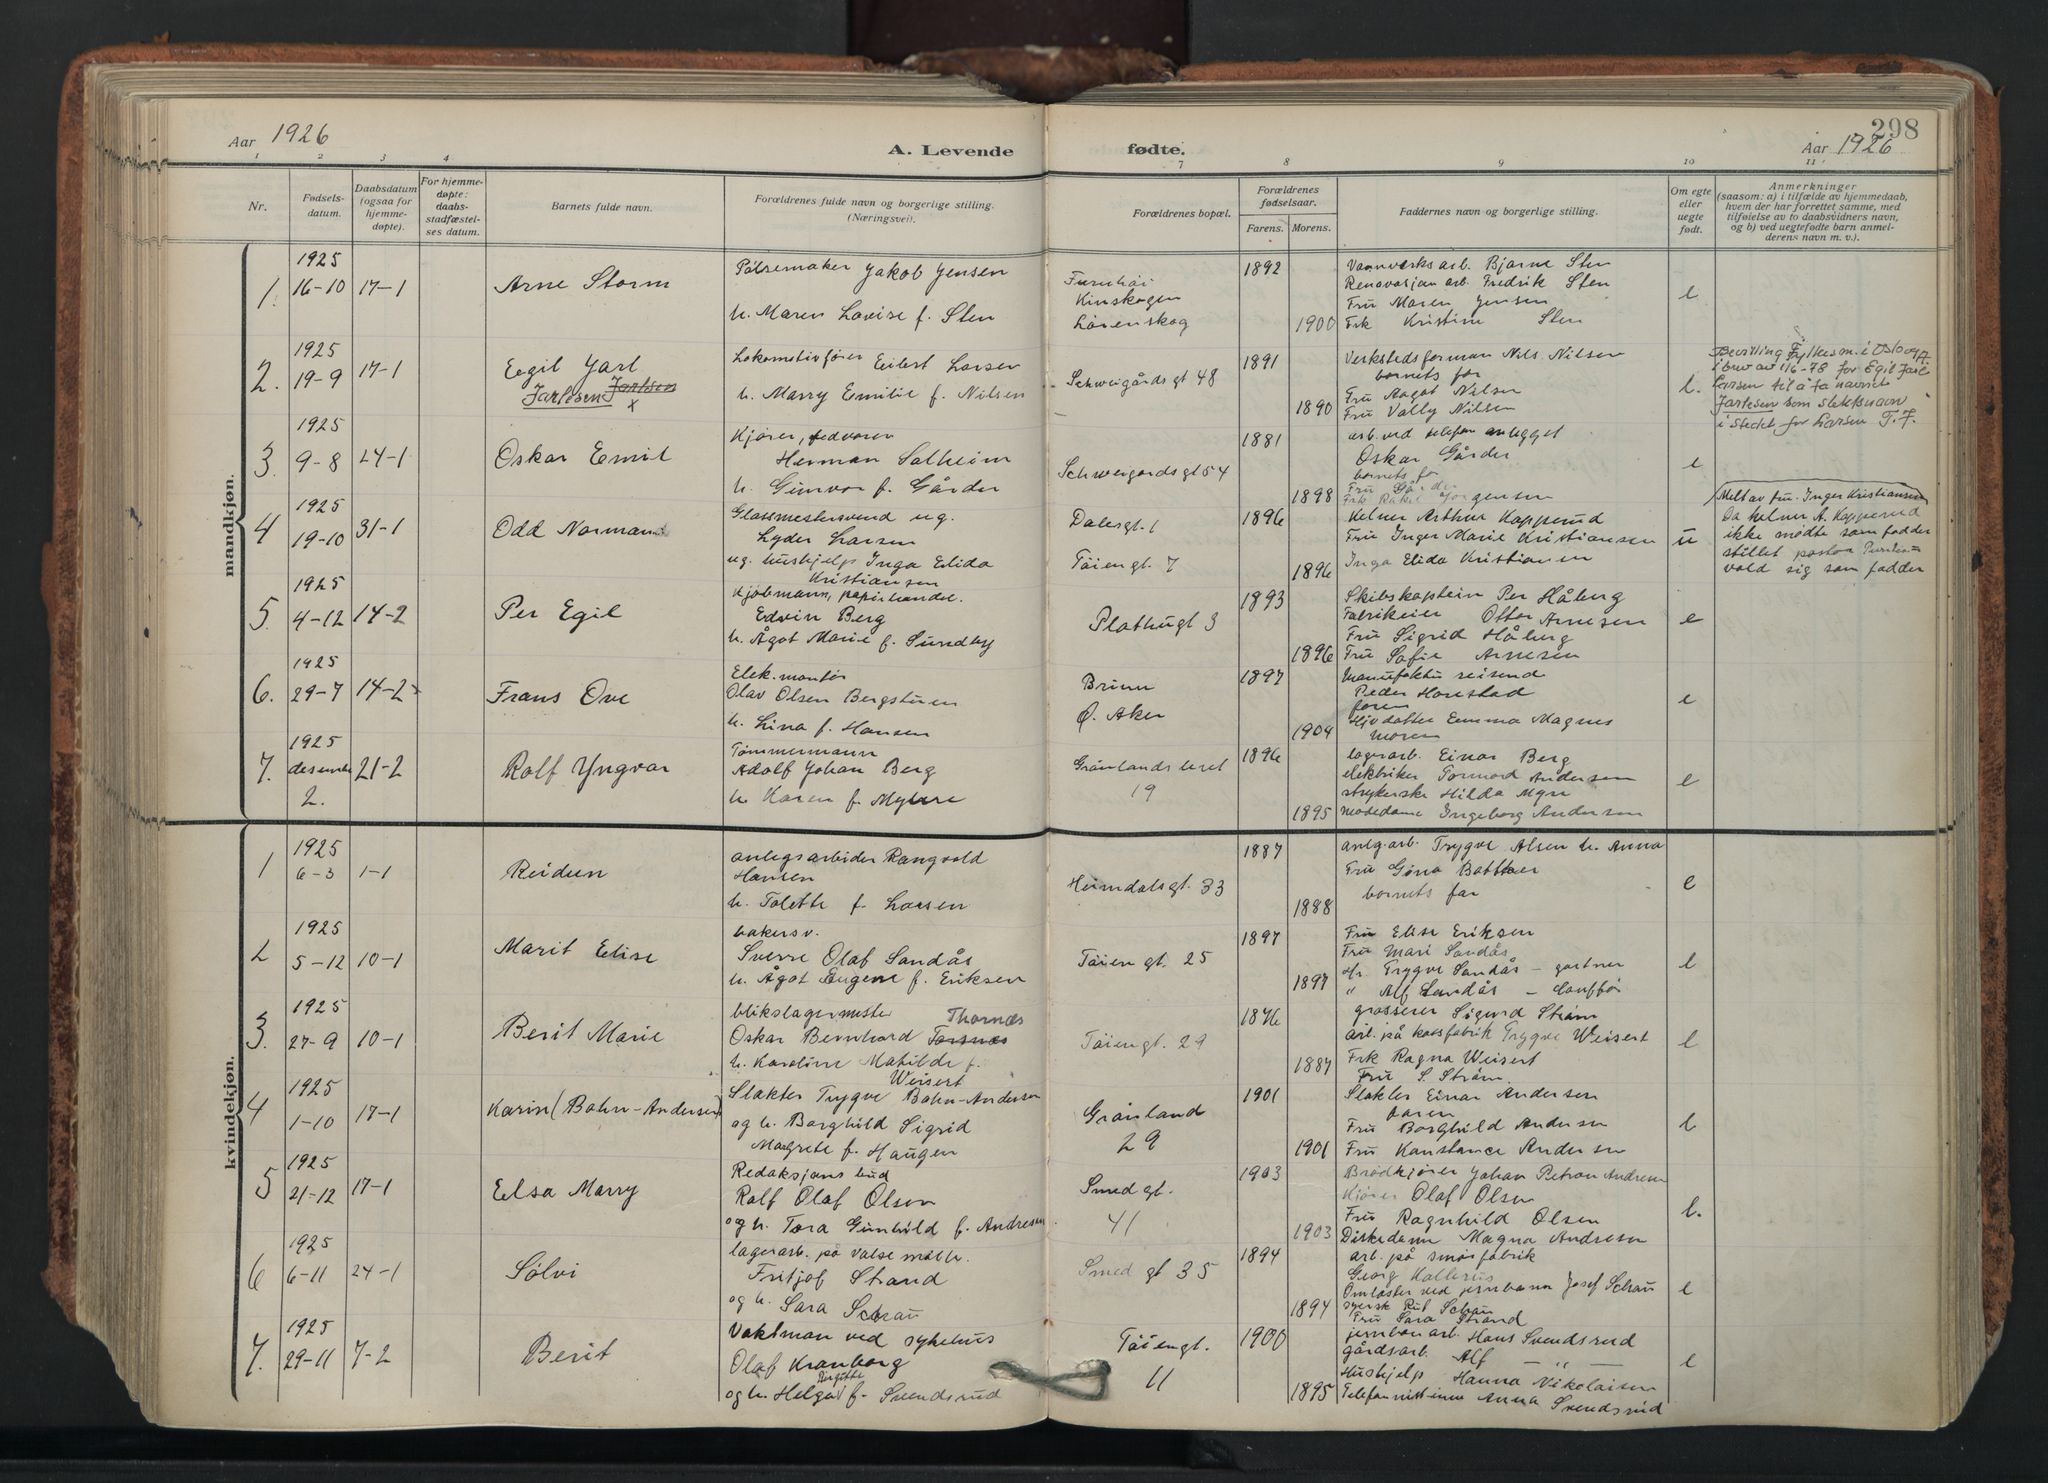 298
Aar 1926
A. Levende fødte.
Aar 1926
1 2 3 4 7 8 9 10 11
Nr.
Fødsels-
datum.
Daabsdatum
(ogsaa for
hjemme-
døpte).
For hjemme-
døpte:
daabs-
stadfæstel-
ses datum.
Barnets fulde navn.
Forældrenes fulde navn og borgerlige stilling.
(Næringsvei).
Forældrenes bopæl.
Forældrenes
fødselsaar.
Farens. Morens.
Faddernes navn og borgerlige stilling.
Om egte
eller
uegte
født.
Anmerkninger
(saasom: a) i tilfælde av hjemmedaab,
hvem der har forrettet samme, med
tilføielse av to daabsvidners navn,
og b) ved uegtefødte barn anmel-
derens navn m. v.).
mandkjøn.
1. 1925 16-10 17-1
Arne Storm
Pølsemaker Jakob Jensen
h. Maren Lovise f. Sten
Furuhøi
Kinskogen
Lørenskog
1892
1900
Vannverksarb. Bjarne Sten
Renovasjon arb. Fredrik Sten
Fru Maren Jensen
Frk Kristine Sten
e
2. 1925 19-9 17-1
Egil Jarl
Jarlesen Jarlsen
x
Lokomotivfører Eilert Larsen
h. Marry Emilie f. Nilsen
Schweigårdsgt 48
1891
1890
Verkstedsforman Nils Nilsen
barnets far
Fru Aagot Nilsen
Fru Vally Nilsen
e.
Bevilling Fylkesm. i Oslo og A.
i brev av 1/6-78 for Egil Jarl
Larsen til å ta navnet
Jarlesen som slektsnavn
i stedet for Larsen T.F.
3. 1925 9-8 24-1
Oskar Emil
Kjører, vedvaren
Herman Solheim
h. Gunvor f. Gårder
Schweigårdsgt 54
1881
1898
arb. ved telefon anlegget
Oskar Gårder
barnets far
Fru Gårder
Frk Rakel Jørgensen
e
4 1925 19-10 31-1
Odd Norman
Glassmestersvend ug.
Lyder Larsen
ug. hushjelp Inga Elida
Kristiansen
Dalesgt. 1
Tøiengt. 7
1896
1896
Kelner Arthur Kopperud
Fru Inger Marie Kristiansen
Inga Elida Kristiansen
u
Melt av fru. Inger Kristiansen
Da kelner A. Kopperud
ikke mødte som fadder
stillet pastor
vold sig som fadder
5. 1925 4-12 14-2
Per Egil
Kjøbmann, papirhandel.
Edvin Berg
h. Ågot Marie f. Sundby
Plathusgt 3
1893
1896
Skibskaptein Per Håberg
Fabrikeier Otto Arnesen
Fru Sigrid Håberg
Fru Sofie Arnesen
e
6. 1925 29-7 14-2
Frans Ove
Elek. montør
Olav Olsen Bergstuen
h. Lina f. Hansen
Brunn
Ø. Aker
1897
1904
manufaktu reisend
Peder Horestad
faren
Hjv datter Emma Magnes
moren
e
7. 1925 desember 2. 21-2
Rolf Yngvar
Tømmermann
Adolf Johan Berg
h. Karen f. Myhre
Grønlandsleret
19
1896
1895
lagerarb. Einar Berg
elektriker Tormod Andersen
strykerske Hilda Myre
modedame Ingeborg Andersen
e
kvindekjøn.
1 1925 6-3 1-1
Reidun
anlegsarbeider Rangvald
Hansen
h. Tolette f. Larsen
Heimdalsgt. 33
1887
1888
anlg. arb. Trygve Olsen h. Anna
Fru Gina
barnets far
e
2 1925 5-12 10-1
Marit Elise
bakersv.
Sverre Olaf Sandås
h. Ågot Eugene f. Eriksen
Tøiengt. 25
1897
1897
Fru Elise Eriksen
Fru Mari Sandås
Hr. Trygve Sandås - gartner
" Alf Sandås - Sauffør
e
3. 1925 27-9 10-1
Berit Marie
blikslagermester Thornæs
Oskar Bernhard Torsnæs
h. Karoline Matilde f.
Weisert
Tøiengt. 29
1876
1887
grosserer Sigurd Strøm
arb. på kassfabrik Trygve Weisert
Frk Ragna Weisert
Fru S. Strøm
e
4 1925 1-10 17-1
Karin (Bahn-Andersen)
Slakter Trygve Bahn-Andersen
og h. Borghild Sigrid
Magrete f. Haugen
Grønland
29
1901
1901
Slakter Einar Andersen
faren
Fru Borghild Andersen
Fru Konstance Andersen
e
5 1925 21-12 17-1
Elsa Marry
Redaksjons bud
Rolf Olaf Olsen
og h. Tora Gunhild f. Andresen
Smedgt.
41
1903
1903
Brødkjører Johan Petron Andresen
Kjører Olaf Olsen
Fru Ragnhild Olsen
Diskedame Magna Andresen
e.
6 1925 6-11 24-1
Sølvi
lagerarb. på valse mølle.
Fritjof Strand
og h. Sara Schau
Smedgt 35
1894
1894
arb. på smørfabrik
Georg Kallerus
Omlaster ved jernbane Josef Schau
syersk Rut Schau
Fru Sara Strand
e
7. 1925 29-11 7-2
Berit
Vaktman ved sykehus
Olaf Kranborg
Birgitte
og h. Helga f. Svendsrud
Tøiengt.
11
1900
1895
jernbanarb. Hans Svendsrud
gårdsarb. Alf - " -
Hushjelp Hanna Nikolaisen
Telefonistinne Anna Svendsrud
e